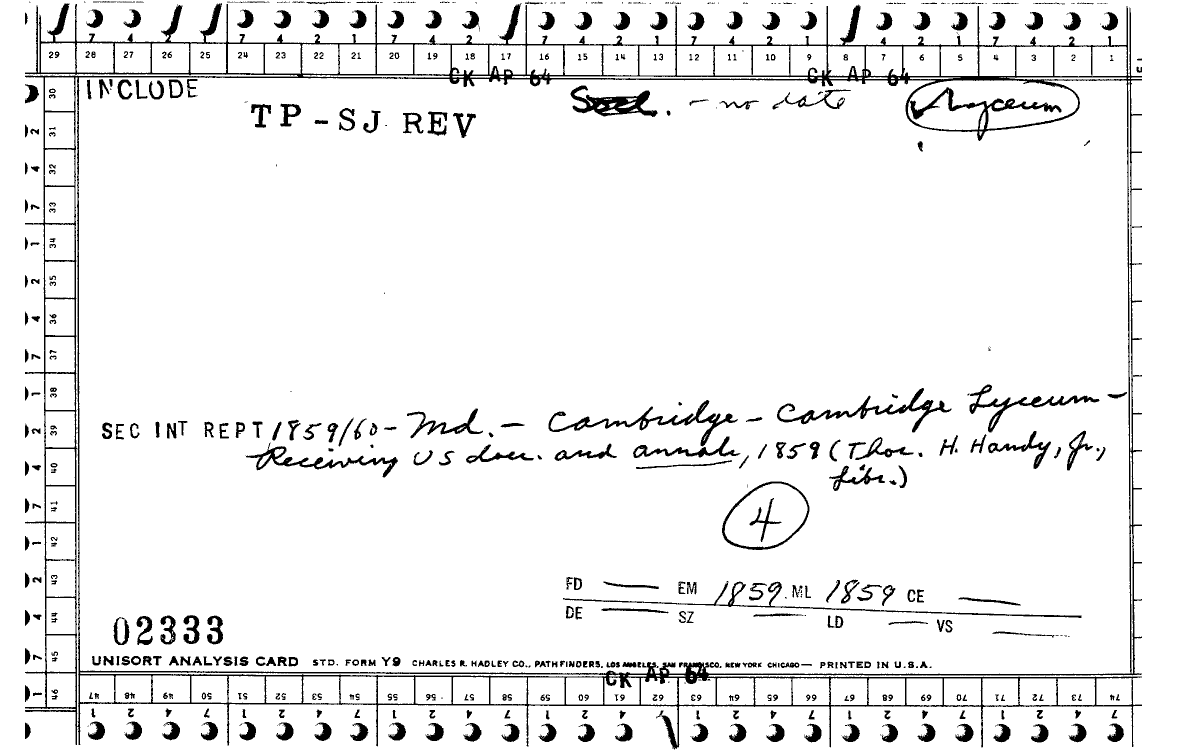 7 4 2 1 7 4 2 1 7 4 2 1 7 4 2 1 7 4 2 1 7 4 2 1 7 4 2 1
29 28 27 26 25 24 23 22 21 20 19 18 17 16 15 14 13 12 11 10 9 8 7 6 5 4 3 2 1
CK AP 64 CK AP 64
INCLUDE
TP-SJ REV
- no date
Lyceum
SEC INT REPT 1859/60 - Md. - Cambridge - Cambridge Lyceum -
Receiving US docs. and annals, 1859 (Thos. H. Handy, Jr.,
Libr.)
4
FD — EM 1859 ML 1859 CE —
DE — SZ — LD — VS —
02333
UNISORT ANALYSIS CARD STD. FORM Y9 CHARLES R. HADLEY CO., PATHFINDERS, LOS ANGELES, SAN FRANCISCO, NEW YORK CHICAGO — PRINTED IN U.S.A.
CK AP 64
47 48 49 50 51 52 53 54 55 56 57 58 59 60 61 62 63 64 65 66 67 68 69 70 71 72 73 74
1 2 4 7 1 2 4 7 1 2 4 7 1 2 4 7 1 2 4 7 1 2 4 7 1 2 4 7
30 31 32 33 34 35 36 37 38 39 40 41 42 43 44 45 46
2 4 7 1 2 4 7 1 2 4 7 1 2 4 7 1